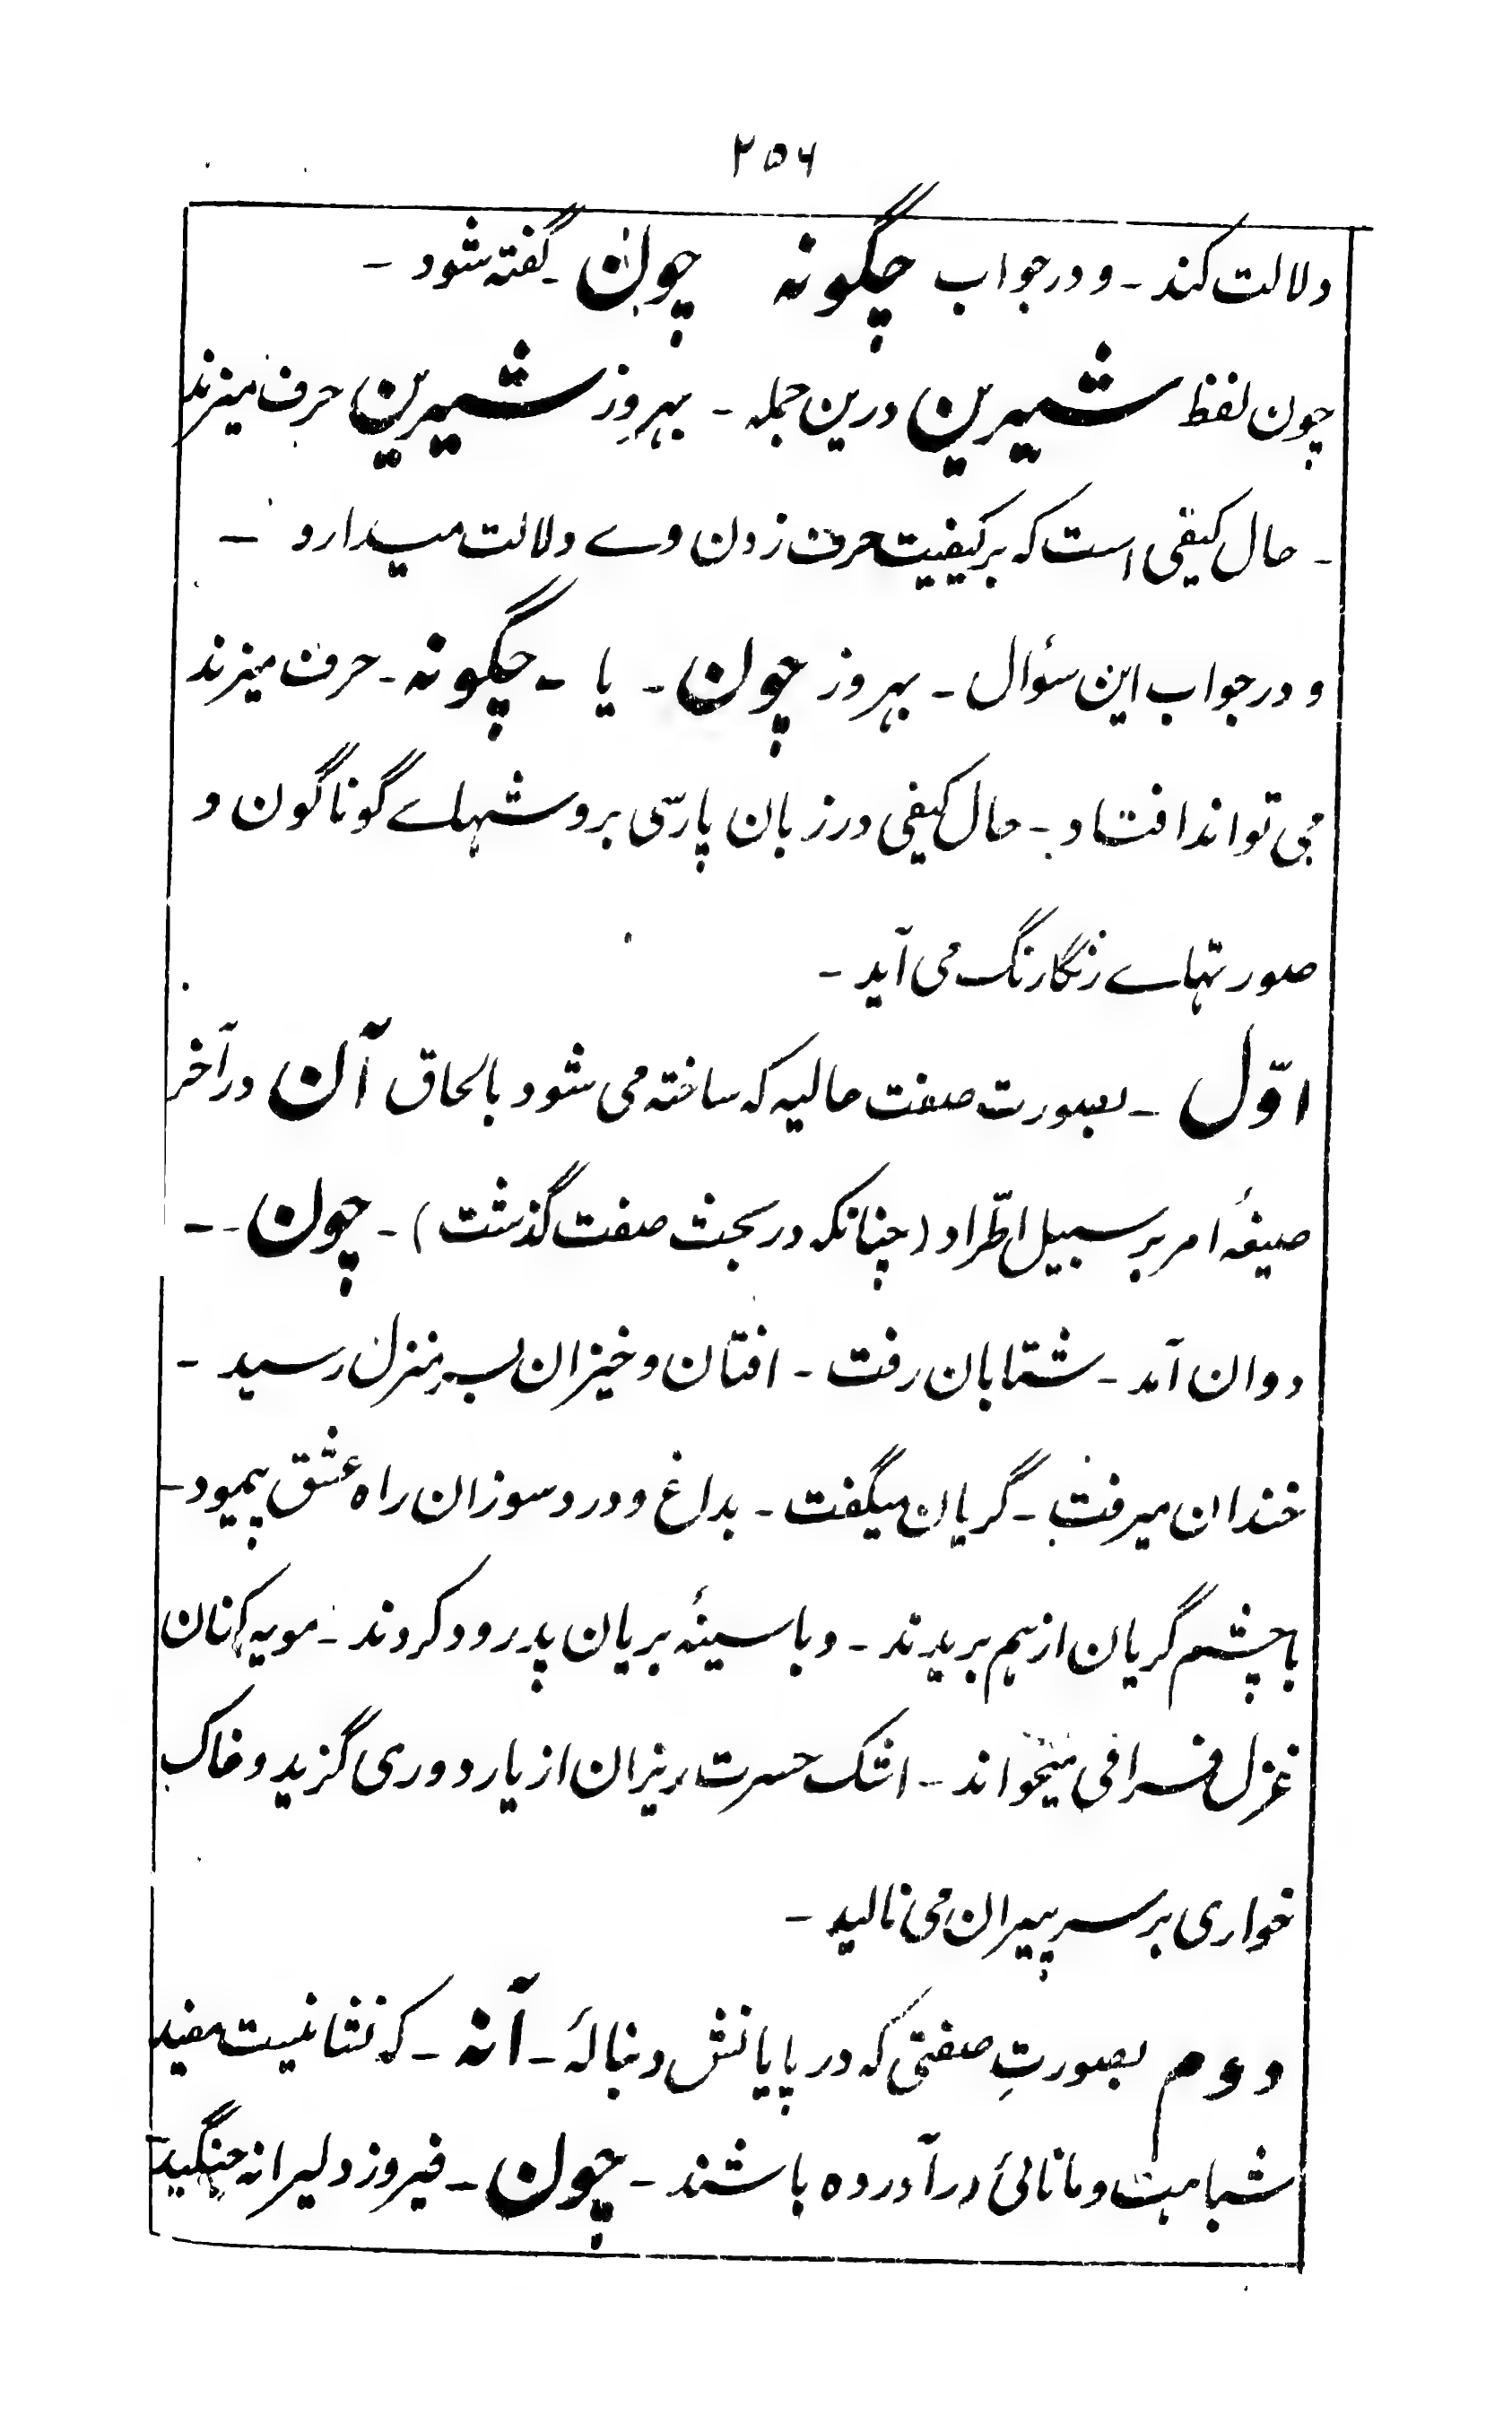 ۲۵۶
دلالت کند ـ و در جواب چگونه چون ـ گفته شود ـ
چون لفظ شیرین درین جمله ـ بهروز شیرین حرف میزند
ـ حال کیفی است که بر کیفیت حرف زدن وے دلالت میدارد ـ
و در جواب این سؤال ـ بهروز چون ـ یا ـ چگونه ـ حرف میزند
می تواند افتاد ـ حال کیفی در زبان پارسی بروشهاے گوناگون و
صورتهاے رنگارنگ می آید ـ
اوّل ـ بصورت صفت حالیه که ساخته می شود بالحاق آن در آخر
صیغۀ امر بر سبیل اطّراد (چنانکه در بحث صفت گذشت) ـ چون ـ ـ
دوان آمد ـ شتابان رفت ـ افتان و خیزان بسر منزل رسید ـ
خندان میرفت ـ گریان میگفت ـ بداغ و درد سوزان راه عشق پیمود ـ
با چشم گریان از هم بریدند ـ و با سینۀ بریان پدرود کردند ـ مویه کنان
غزل فراقی میخواند ـ اشک حسرت ریزان از یار دوری گزید و خاک
خواری بر سر پیران می نالید ـ
دوم بصورتِ صفتی که در پایانش دنبالۀ ـ آنه ـ که نشانیست مفید
شباهت و مانائی در آورده باشند ـ چون ـ فیروز دلیرانه جنگید